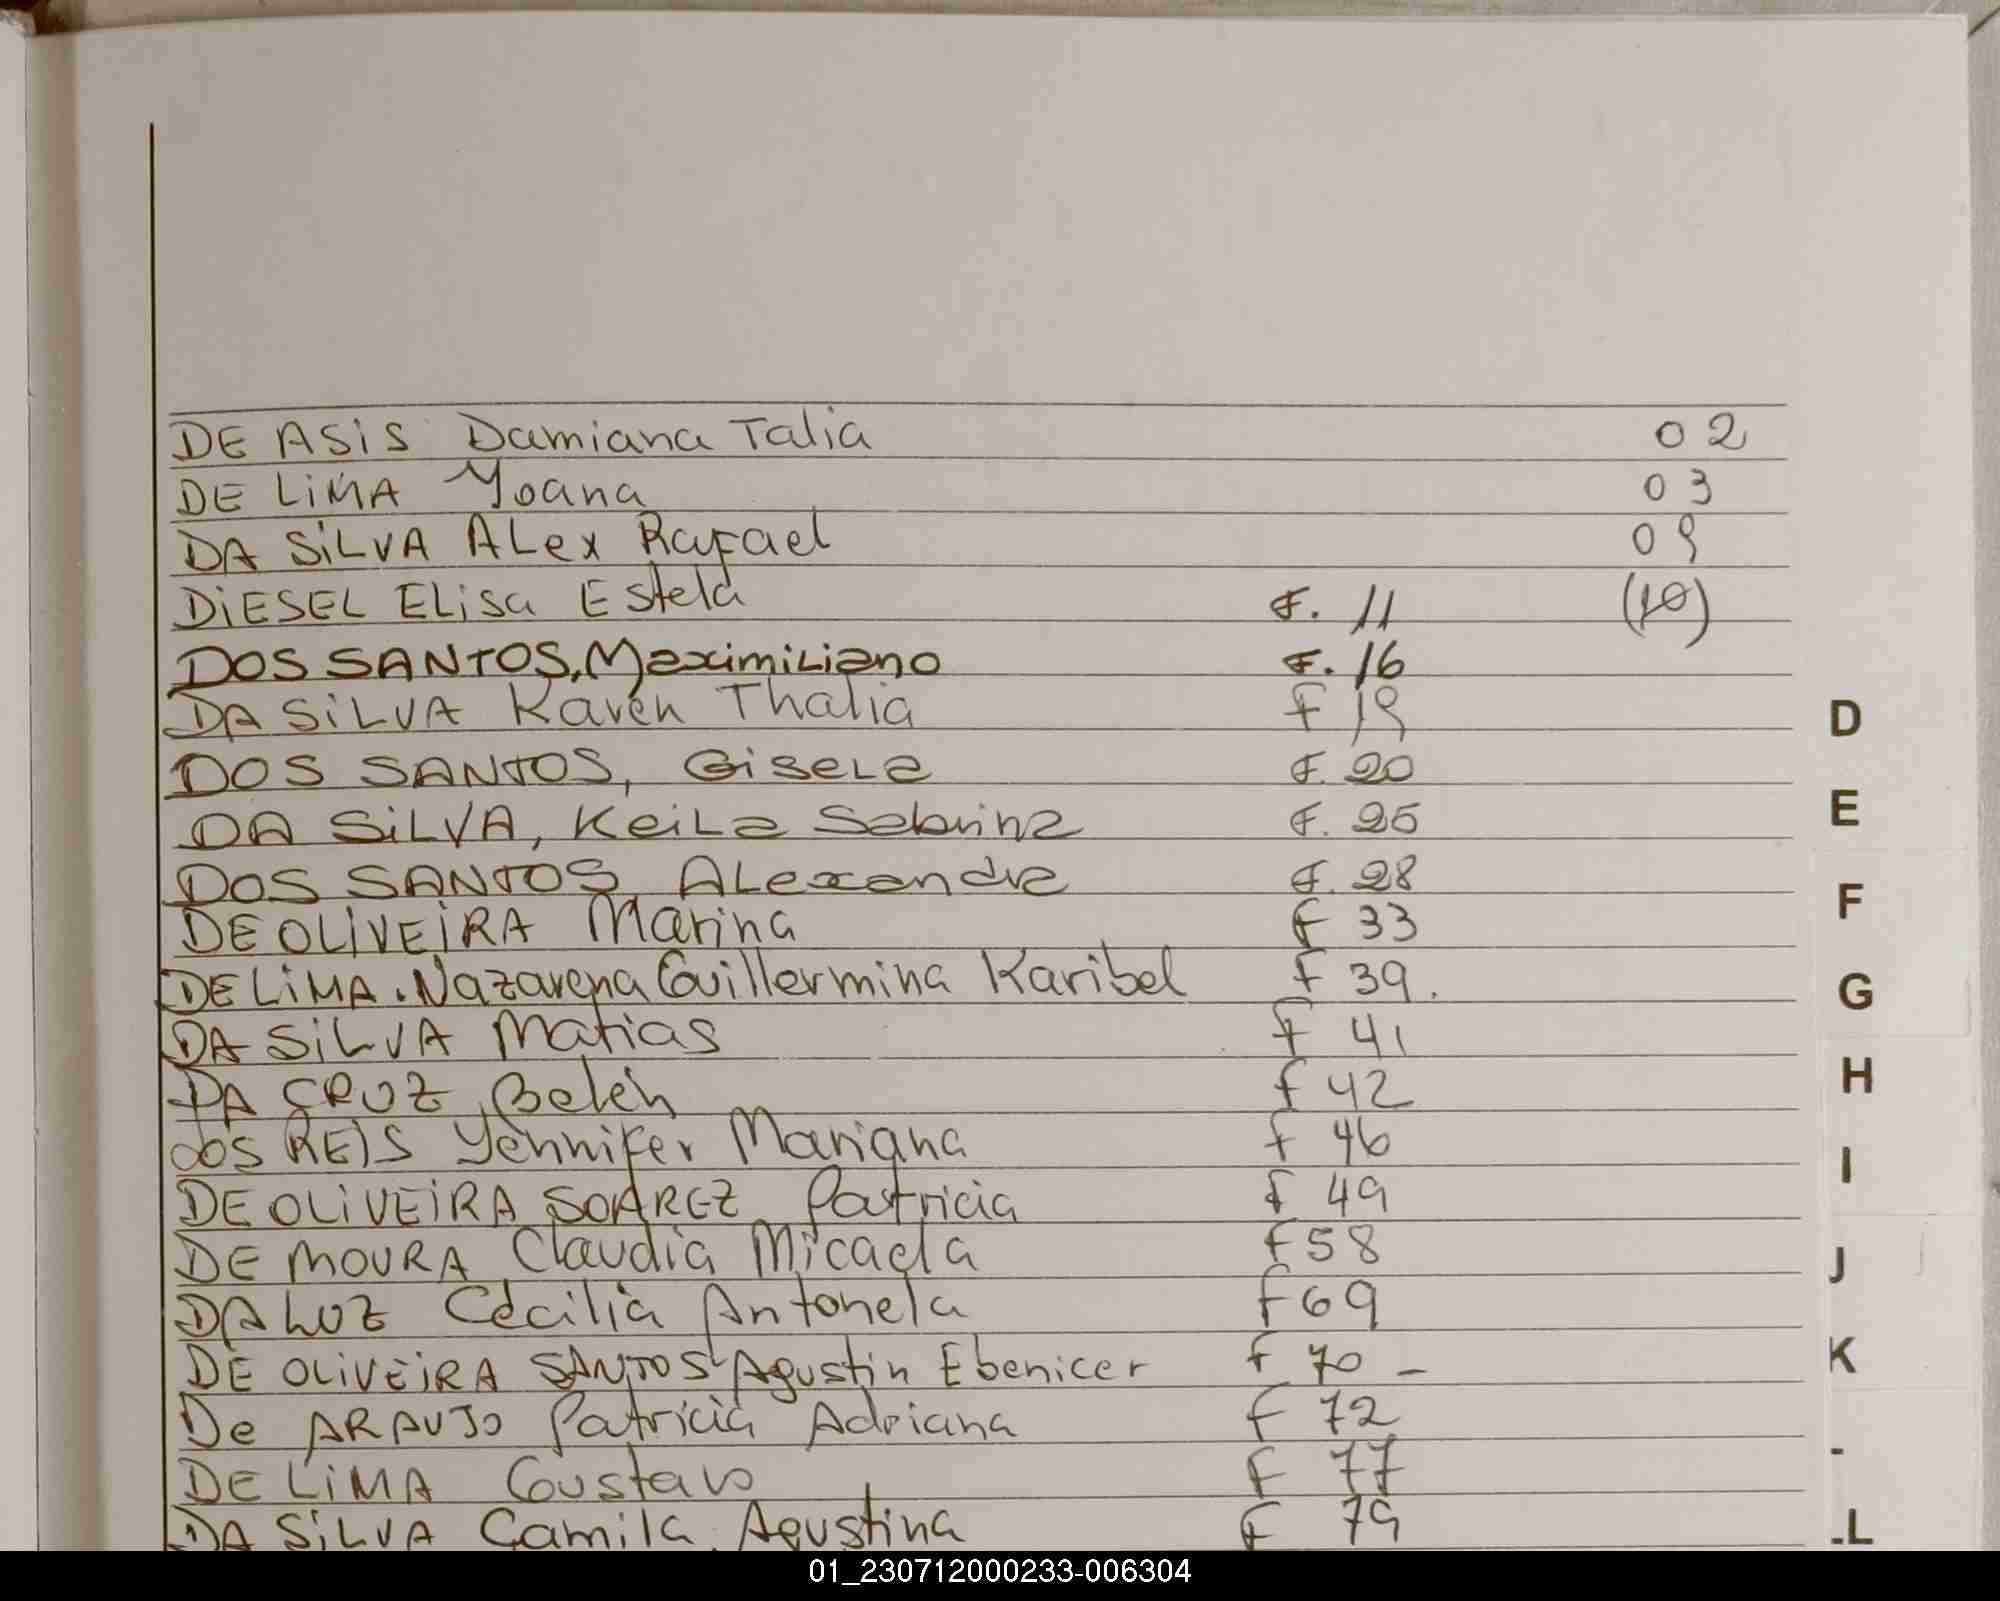 DE ASIS Damiana Talia 02
DE LiMA Yoana 03
DA SiLVA ALex Rafael 09
DiESEL ELisa Estela F. 11 (10)
DOS SANTOS, MaximiLiano F. 16
DA SiLVA Karen Thalia F 19
DOS SANTOS, GiseLa F. 20
DA SiLVA, KeiLa Sabrina F. 25
DOS SANTOS, ALexandra F. 28
DE OLIVEiRA Marina F 33
DE LiMA. Nazarena Guillermina Karibel F 39.
DA SiLVA Matias F 41
DA CRUZ, Belén F 42
DOS REIS Yennifer Mariana F 46
DE OLiVEiRA SOAREZ Patricia F 49
DE MOURA Claudia Micaela F 58
DA LUZ Cecilia Antonela F 69
DE OLIVEIRA SANTOS Agustin Ebenicer F 70 -
De ARAUJO Patricia Adriana F 72
DE LiMA Gustavo F 77
DA SiLVA Camila Agustina F 79
D
E
F
G
H
I
J
K
-
.L
01_230712000233-006304